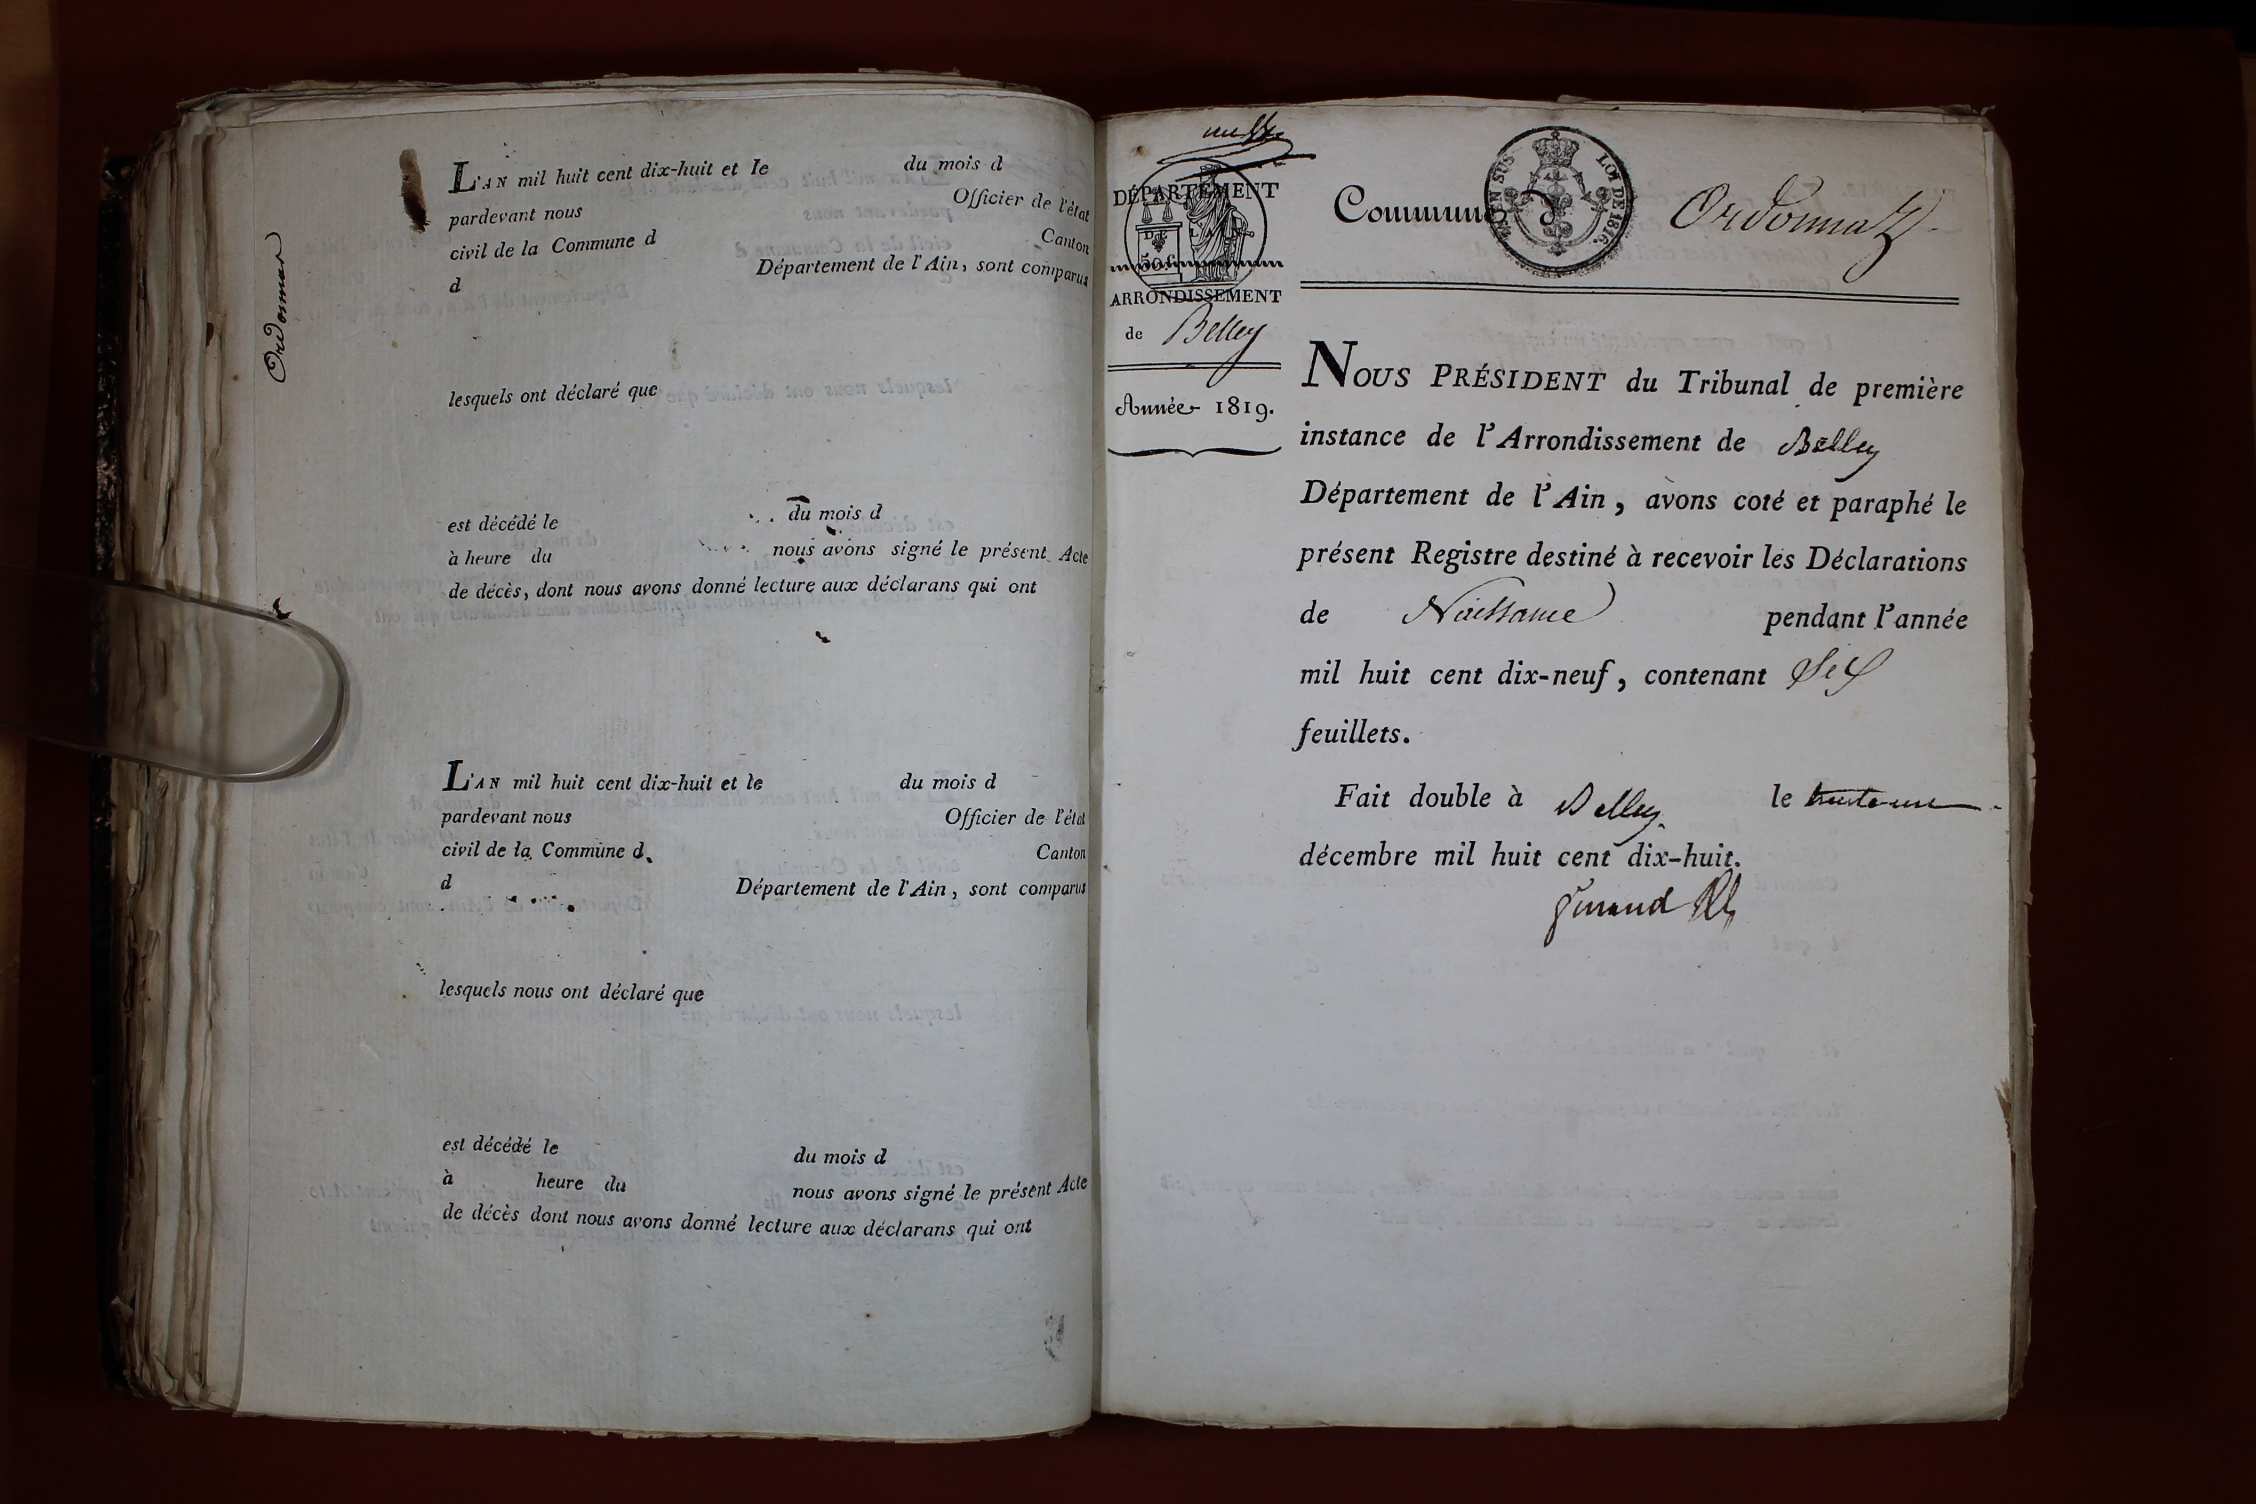 Ordonnas
L'AN mil huit cent dix-huit et le du mois d
pardevant nous Officier de l'état
civil de la Commune d Canton
d Département de l'Ain, sont comparus
lesquels ont déclaré que
est décédé le du mois d
à heure du nous avons signé le présent Acte
de décès, dont nous avons donné lecture aux déclarans qui ont
L'AN mil huit cent dix-huit et le du mois d
pardevant nous Officier de l'état
civil de la Commune d Canton
d Département de l'Ain, sont comparus
lesquels nous ont déclaré que
est décédé le du mois d
à heure du nous avons signé le présent Acte
de décès dont nous avons donné lecture aux déclarans qui ont
DÉPARTEMENT
DE L'AIN
50 c
ARRONDISSEMENT
de Belley
Année 1819.
EN SUS
LOI DE 1816.
Commune d Ordonnaz
NOUS PRÉSIDENT du Tribunal de première
instance de l'Arrondissement de Belley
Département de l'Ain, avons coté et paraphé le
présent Registre destiné à recevoir les Déclarations
de Naissance pendant l'année
mil huit cent dix-neuf, contenant Six
feuillets.
Fait double à Belley le trente-un
décembre mil huit cent dix-huit.